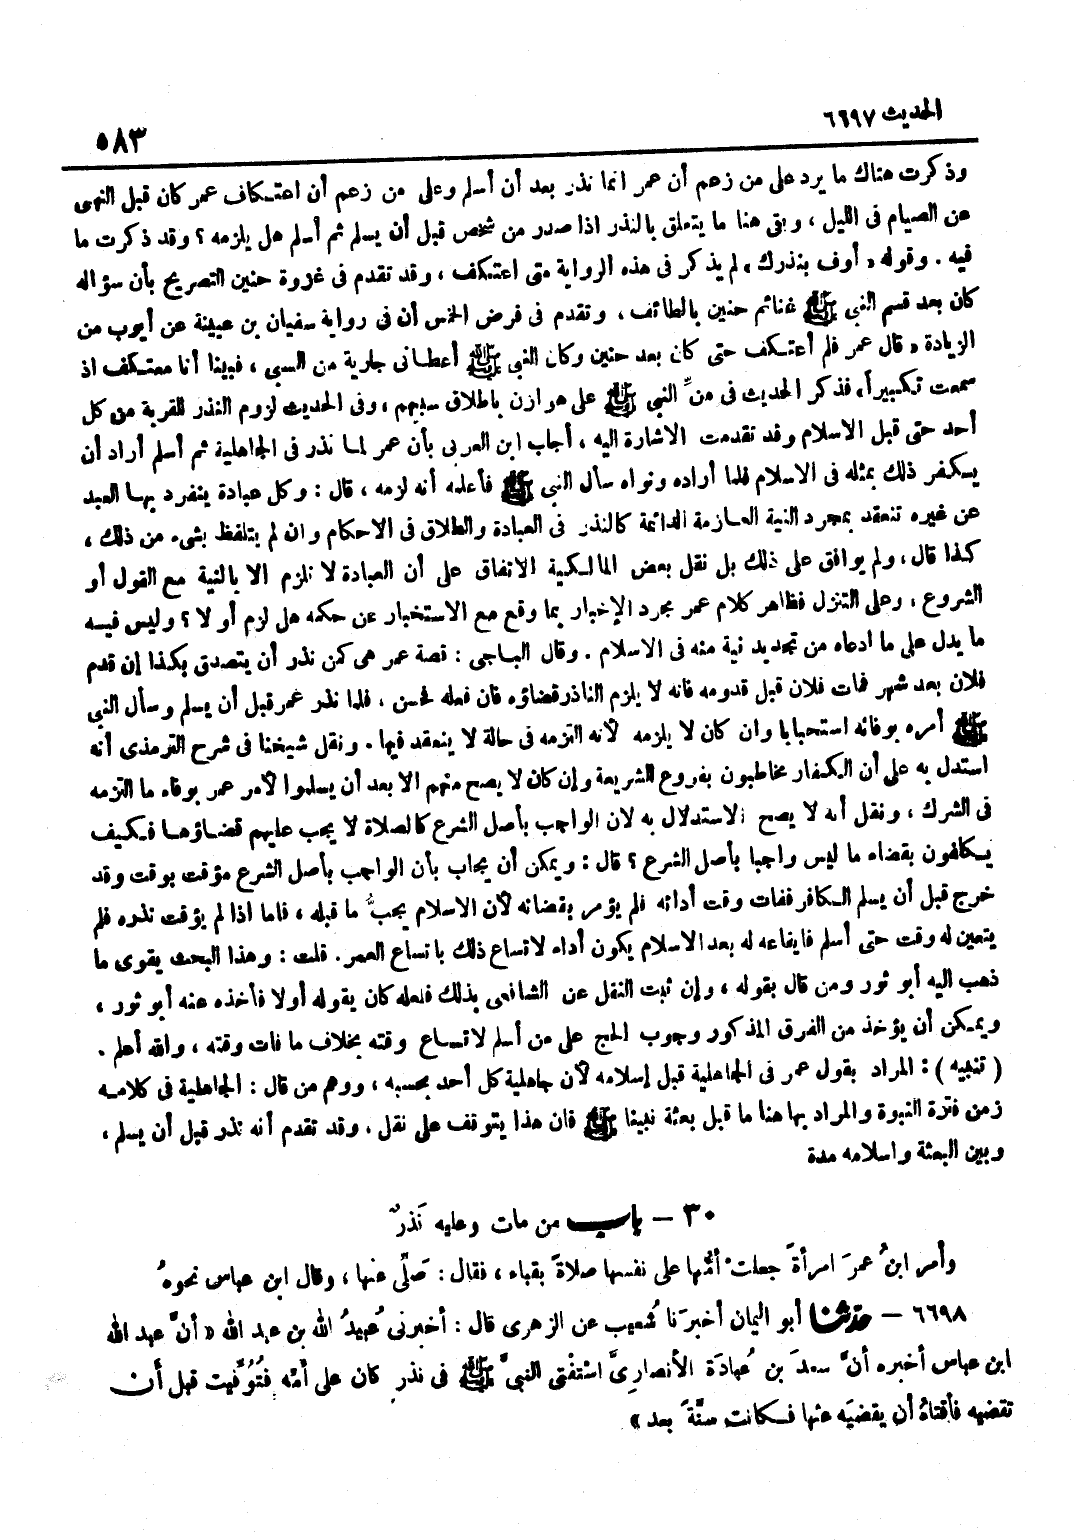 الحديث ٦٦٩٧
٥٨٣
وذكرت هناك ما يرد على من زعم أن عمر انما نذر بعد أن أسلم وعلى من زعم أن اعتكاف عمر كان قبل النهى
عن الصيام فى الليل ، وبقى هنا ما يتعلق بالنذر اذا صدر من شخص قبل أن يسلم ثم أسلم هل يلزمه ؟ وقد ذكرت ما
فيه . وقوله « أوف بنذرك » لم يذكر فى هذه الرواية متى اعتكف ، وقد تقدم فى غزوة حنين التصريح بأن سؤاله
كان بعد قسم النبى ﷺ غنائم حنين بالطائف ، وتقدم فى فرض الخمس أن فى رواية سفيان بن عيينة عن أيوب من
الزيادة « قال عمر فلم أعتكف حتى كان بعد حنين وكان النبى ﷺ أعطانى جارية من السبى ، فبينا أنا معتكف اذ
سمعت تكبيراً » فذكر الحديث فى منِّ النبى ﷺ على هوازن باطلاق سبيهم ، وفى الحديث لزوم النذر للقربة من كل
أحد حتى قبل الاسلام وقد تقدمت الاشارة اليه ، أجاب ابن العربى بأن عمر لما نذر فى الجاهلية ثم أسلم أراد أن
يسكفر ذلك بمثله فى الاسلام فلما أراده ونواه سأل النبى ﷺ فأعلمه أنه لزمه ، قال : وكل عبادة ينفرد بها العبد
عن غيره تنعقد بمجرد النية العازمة الدائمة كالنذر فى العبادة والطلاق فى الاحكام وان لم يتلفظ بشىء من ذلك ،
كذا قال ، ولم يوافق على ذلك بل نقل بعض المالكية الاتفاق على أن العبادة لا تلزم الا بالنية مع القول أو
الشروع ، وعلى التنزل فظاهر كلام عمر مجرد الإخبار بما وقع مع الاستخبار عن حكمه هل لزم أو لا ؟ وليس فيه
ما يدل على ما ادعاه من تجديد نية منه فى الاسلام . وقال الباجى : قصة عمر هى كمن نذر أن يتصدق بكذا إن قدم
فلان بعد شهر فمات فلان قبل قدومه فانه لا يلزم الناذر قضاؤه فان فعله فحسن ، فلما نذر عمر قبل أن يسلم وسأل النبى
ﷺ أمره بوفائه استحبابا وان كان لا يلزمه لأنه التزمه فى حالة لا ينعقد فيها . ونقل شيخنا فى شرح الترمذى أنه
استدل به على أن الكفار مخاطبون بفروع الشريعة وإن كان لا يصح منهم الا بعد أن يسلموا لأمر عمر بوفاء ما التزمه
فى الشرك ، ونقل أنه لا يصح الاستدلال به لان الواجب بأصل الشرع كالصلاة لا يجب عليهم قضاؤها فكيف
يكلفون بقضاء ما ليس واجبا بأصل الشرع ؟ قال : ويمكن أن يجاب بأن الواجب بأصل الشرع مؤقت بوقت وقد
خرج قبل أن يسلم الكافر ففات وقت أدائه فلم يؤمر بقضائه لأن الاسلام يجبُّ ما قبله ، فاما اذا لم يؤقت نذره فلم
يتعين له وقت حتى أسلم فايقاعه له بعد الاسلام يكون أداء لاتساع ذلك باتساع العمر . قلت : وهذا البحث يقوى ما
ذهب اليه أبو ثور ومن قال بقوله ، وإن ثبت النقل عن الشافعى بذلك فلعله كان يقوله أولا فأخذه عنه أبو ثور ،
ويمكن أن يؤخذ من الفرق المذكور وجوب الحج على من أسلم لاتساع وقته بخلاف ما فات وقته ، والله أعلم .
( تنبيه ) : المراد بقول عمر فى الجاهلية قبل إسلامه لأن جاهلية كل أحد بحسبه ، ووهم من قال : الجاهلية فى كلامه
زمن فترة النبوة والمراد بها هنا ما قبل بعثة نبينا ﷺ فان هذا يتوقف على نقل ، وقد تقدم أنه نذر قبل أن يسلم ،
وبين البعثة واسلامه مدة
٣٠ – باب من مات وعليه نَذرٌ
وأمر ابنُ عمرَ امرأةً جعلتْ أمُّها على نفسها صلاةً بقباء ، فقال : صَلِّى عنها ، وقال ابن عباس نحوهُ
٦٦٩٨ – حدثنا أبو اليمان أخبرَنا شُعيب عن الزهرى قال : أخبرنى عُبيدُ الله بن عبد الله « أنَّ عبد الله
ابن عباس أخبره أنَّ سعدَ بن عُبادَة الأنصارىَّ استَفْتى النبىَّ ﷺ فى نذر كان على أمِّه فتُوُفِّيت قبل أن
تقضيه فأفتاهُ أن يقضيَه عنها فكانت سنَّةً بعد »